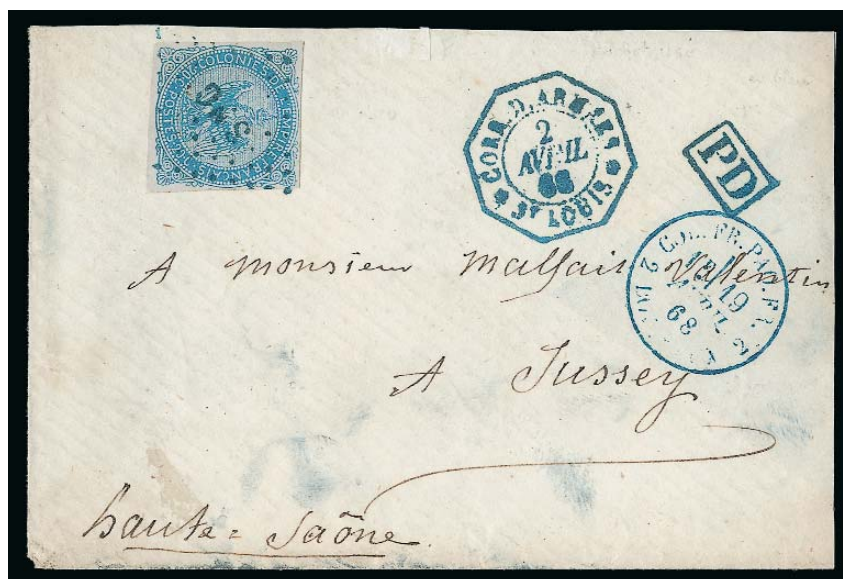 COLONIES DE L'EMPIRE FRANÇAIS POSTES
CORR. D. ARMÉES
2
AVRIL
68
ST LOUIS
PD
COL. FR. PAQ. FR.
19
AVRIL
68
2
A monsieur Malfait Valentin
A Jussey
haute = Saône